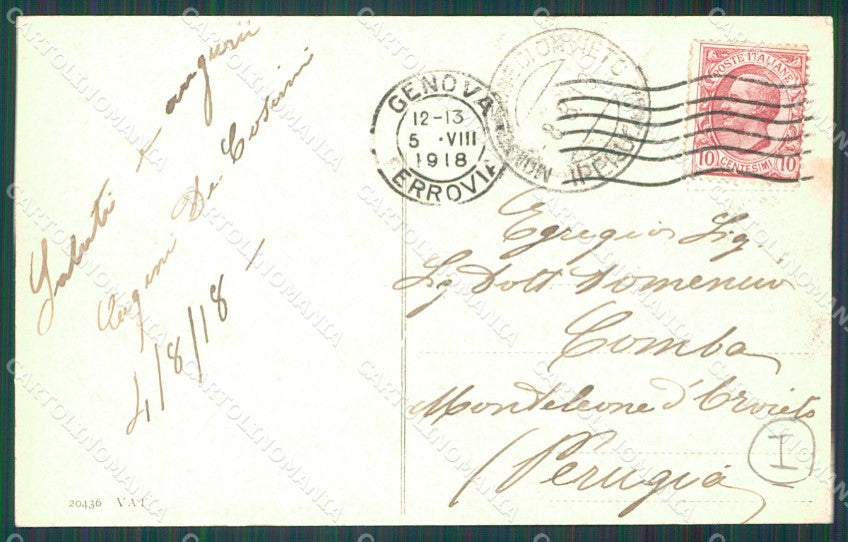 Saluti e auguri
De Cosimi
4/8/18
GENOVA
12-13
5 ·VIII
1918
FERROVIA
POSTE ITALIANE
10 CENTESIMI 10
Egregio Sig
Sg Dott Domenico
Comba
Monteleone d'Orvieto
(Perugia
I
20436 VAT
CARTOLINOMANIA